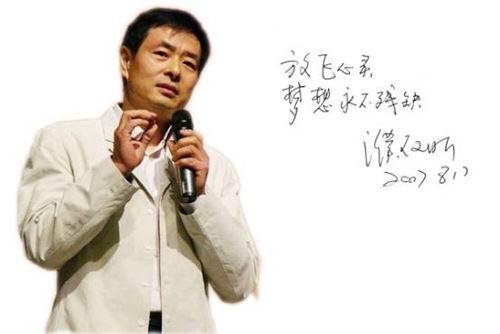 放飞心灵
梦想永不残缺
濮存昕
2007.8.17